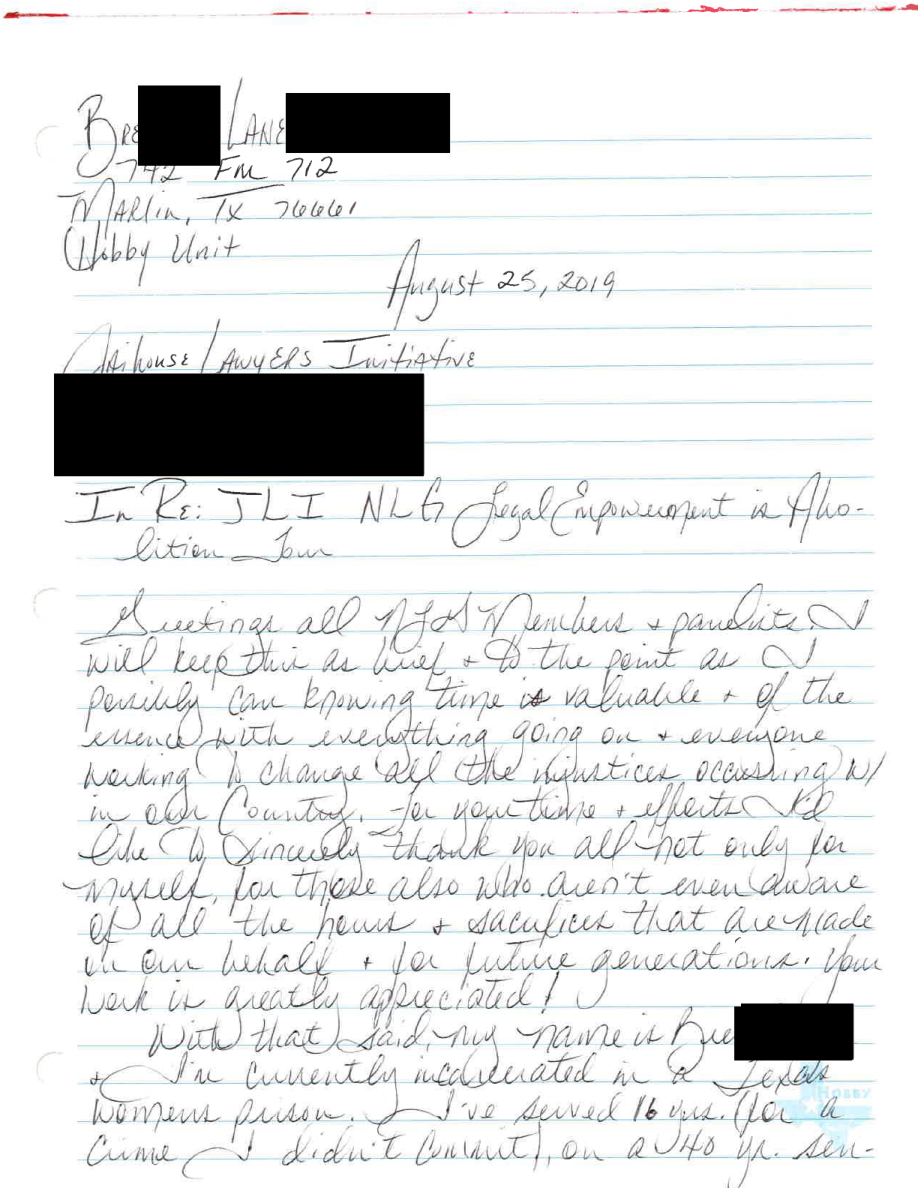 Bre LANE
742 FM 712
MARlin, TX 76661
Hobby Unit
August 25, 2019
JAilhouse LAwyERS InitiAtivE
In RE: JLI NLG Legal Empowerment is Abo-
lition Tour
Greetings all NLG Members + panelists I
will keep this as brief + to the point as I
possibly can knowing time is valuable + of the
essence with everything going on + everyone
working to change all the injustices occurring w/
in our Country. For your time + efforts I'd
like to sincerely thank you all not only for
myself, for those also who aren't even aware
of all the hours + sacrifices that are made
on our behalf + for future generations. Your
work is greatly appreciated!
With that said, my name is Bre
+ I'm currently incarcerated in a Texas
womens prison. I've served 16 yrs. (for a
crime I didn't commit), on a 40 yr. sen-
HOBBY